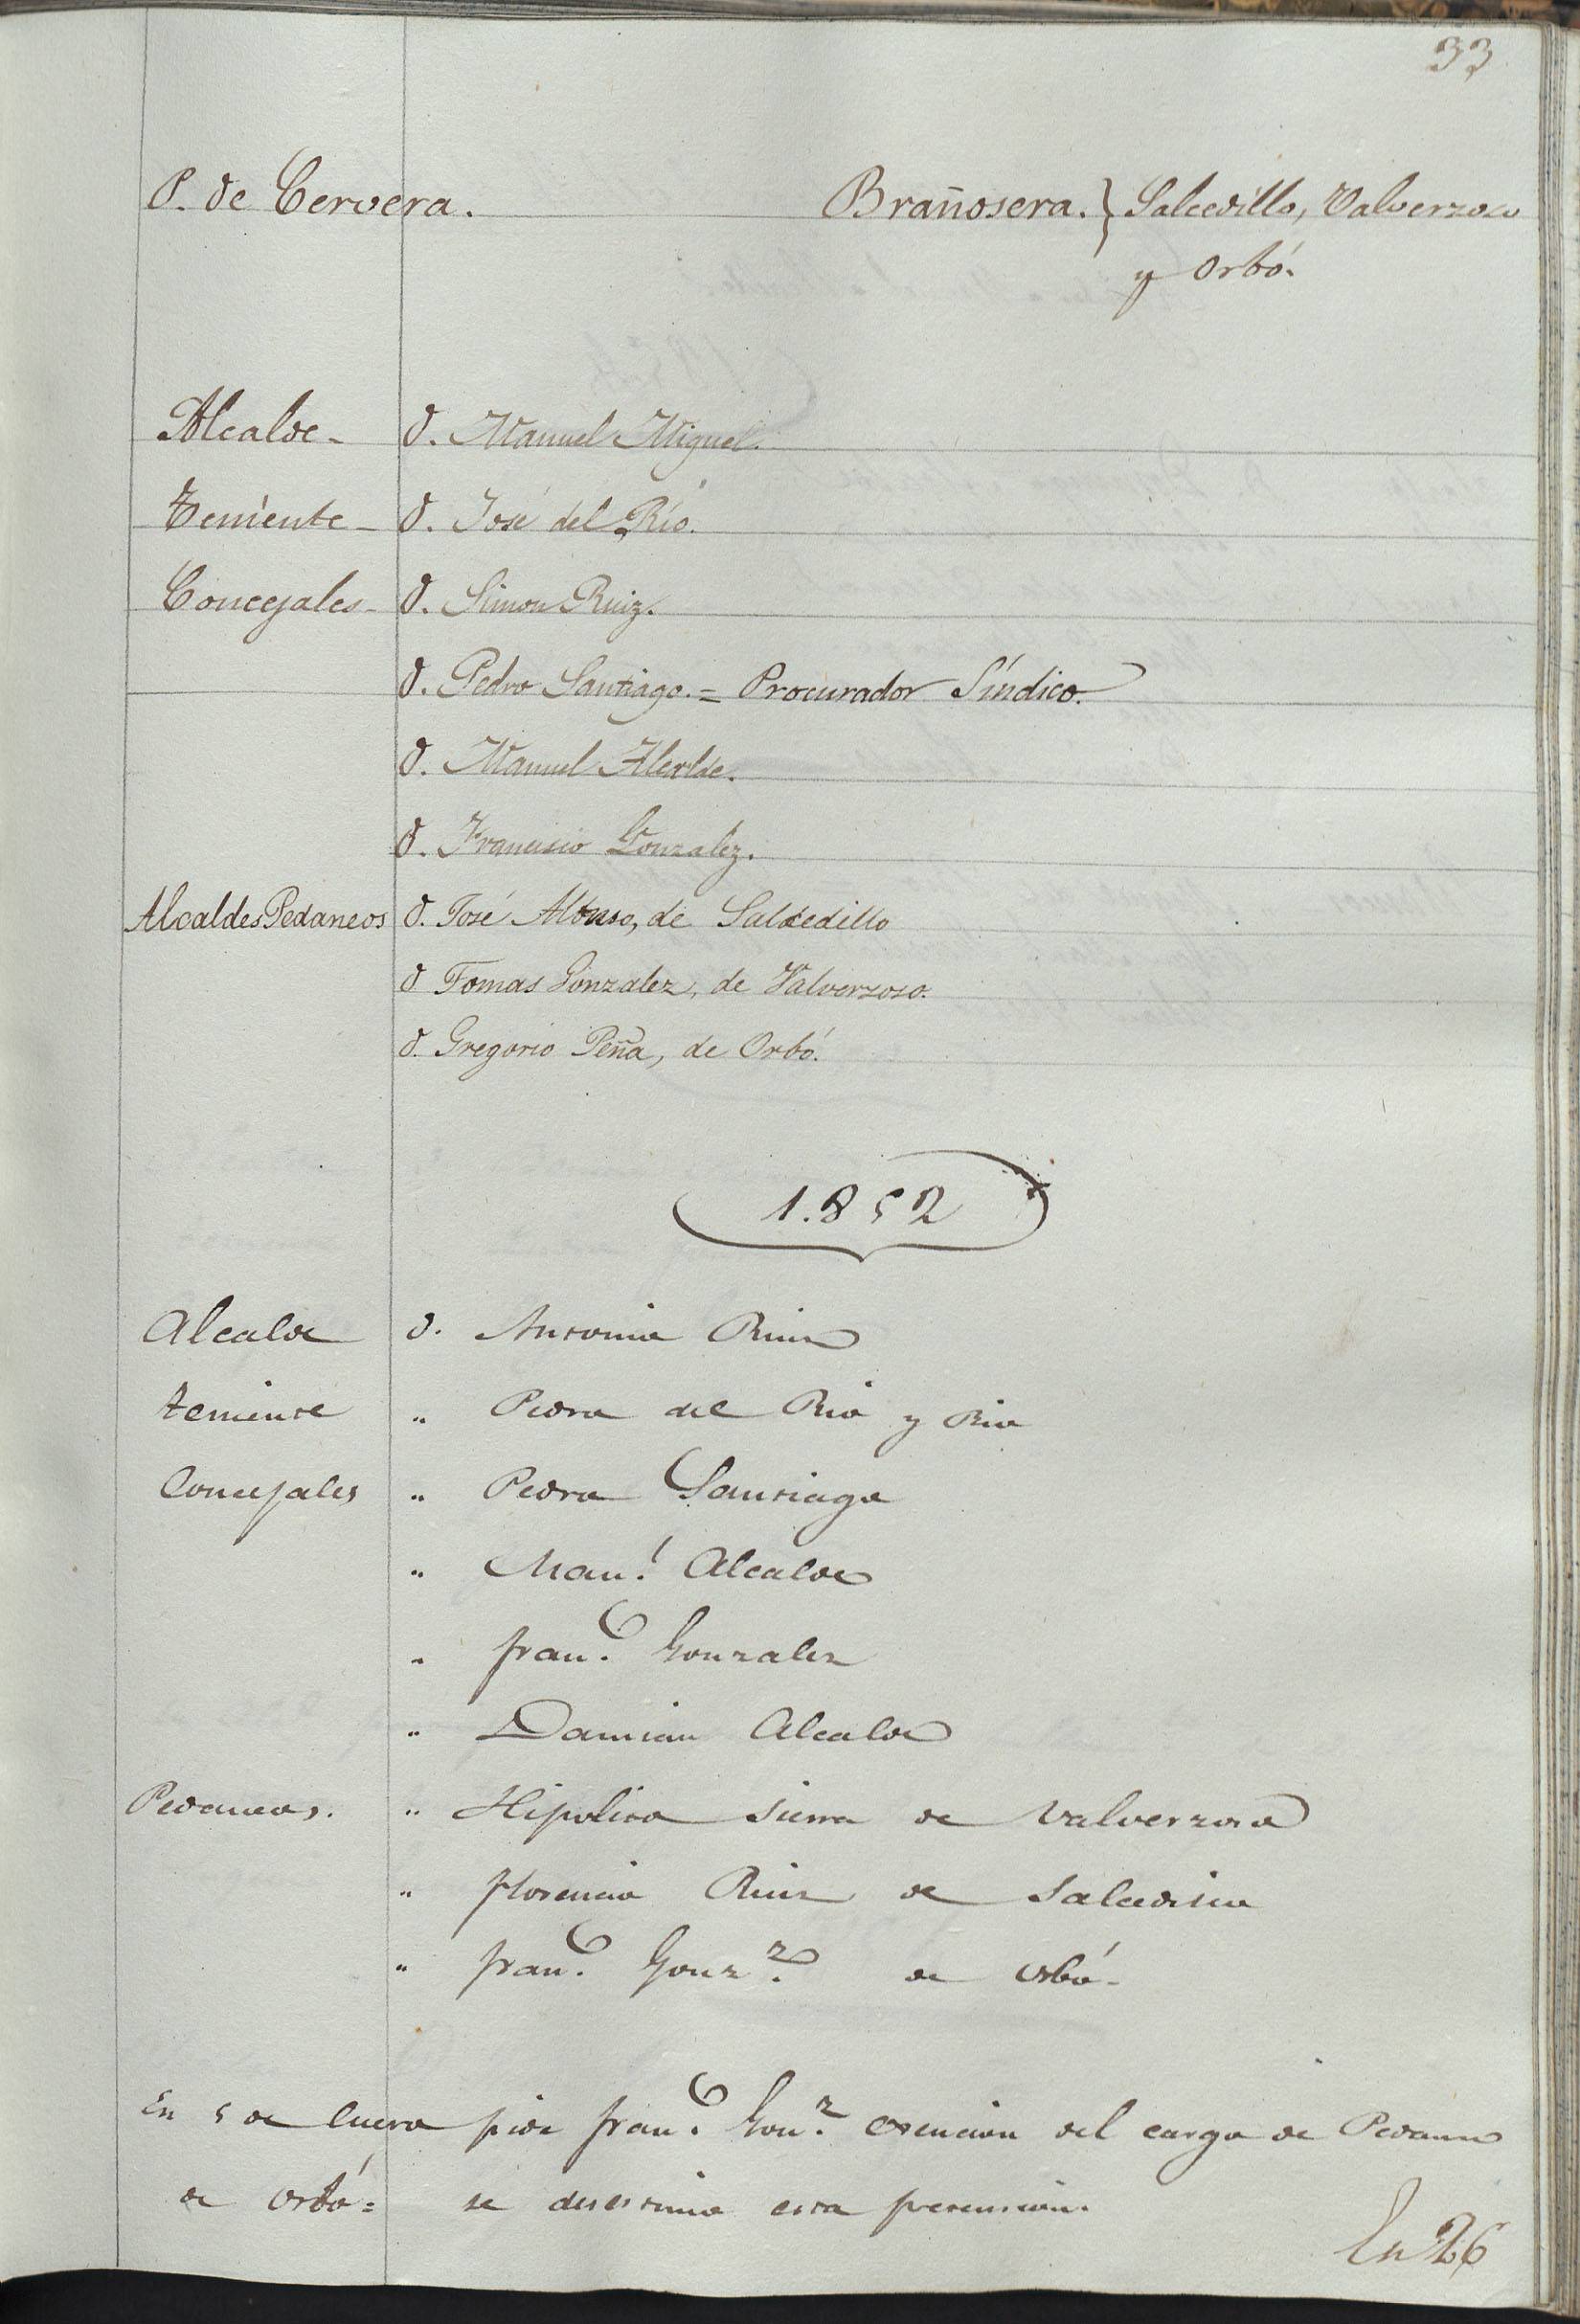 33
P. de Cervera. Brañosera. } Salcedillo, Valverzoso
y Orbó.
Alcalde - D. Manuel Miguel.
Teniente - D. José del Río.
Concejales - D. Simon Ruiz.
D. Pedro Santiago. = Procurador Síndico.
D. Manuel Alcalde.
D. Francisco Gonzalez.
Alcaldes Pedaneos D. José Alonso, de Salcedillo
D Tomas Gonzalez, de Valverzoso.
D. Gregorio Peña, de Orbó.
1.852
Alcalde D. Antonio Ruiz
teniente " Pedro del Rio y Rio
Concejales " Pedro Santiago
" Man.l Alcalde
" fran.co Gonzalez
" Damian Alcalde
Pedaneos. " Hipolito Sierra de Valverzoso
" florencio Ruiz de Salcedillo
" fran.co Gonz.z de Orbó-
En 5 de Enero pide fran.co Gon.z esencion del cargo de Pedaneo
de Orbó = se desestimó esta pretension.
En 26